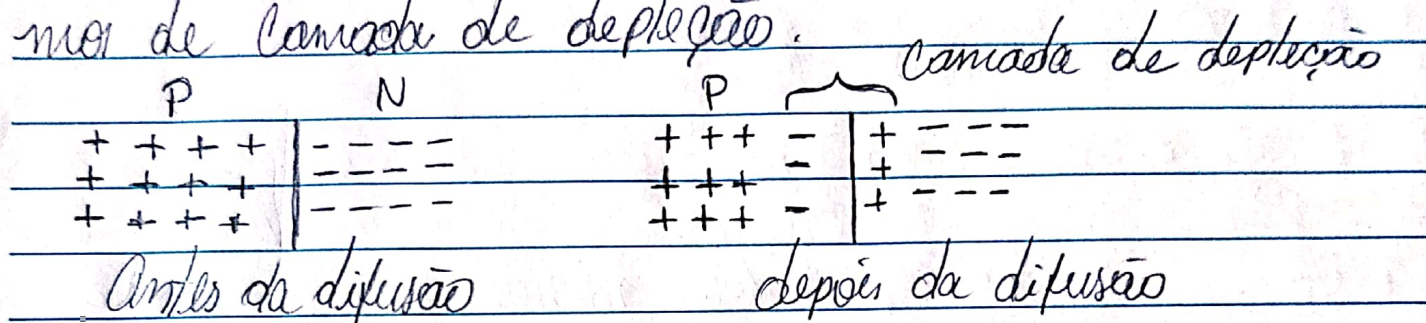 mos de Camada de depleção.
camada de depleção
P N P
+ + + + - - - - + + + - + - - -
+ + + + - - - - + + + - + - - -
+ + + + - - - - + + + - + - - -
Antes da difusão depois da difusão